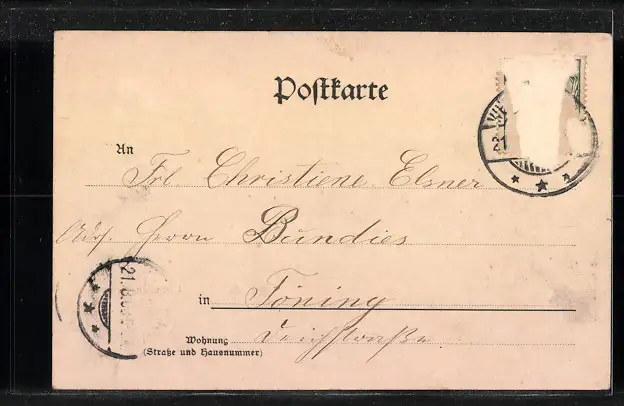 Postkarte
An
Frl Christiene Elsner
Adr. Herrn Bundies
in Töning
Deichstraße
Wohnung
(Straße und Hausnummer)
21.8.